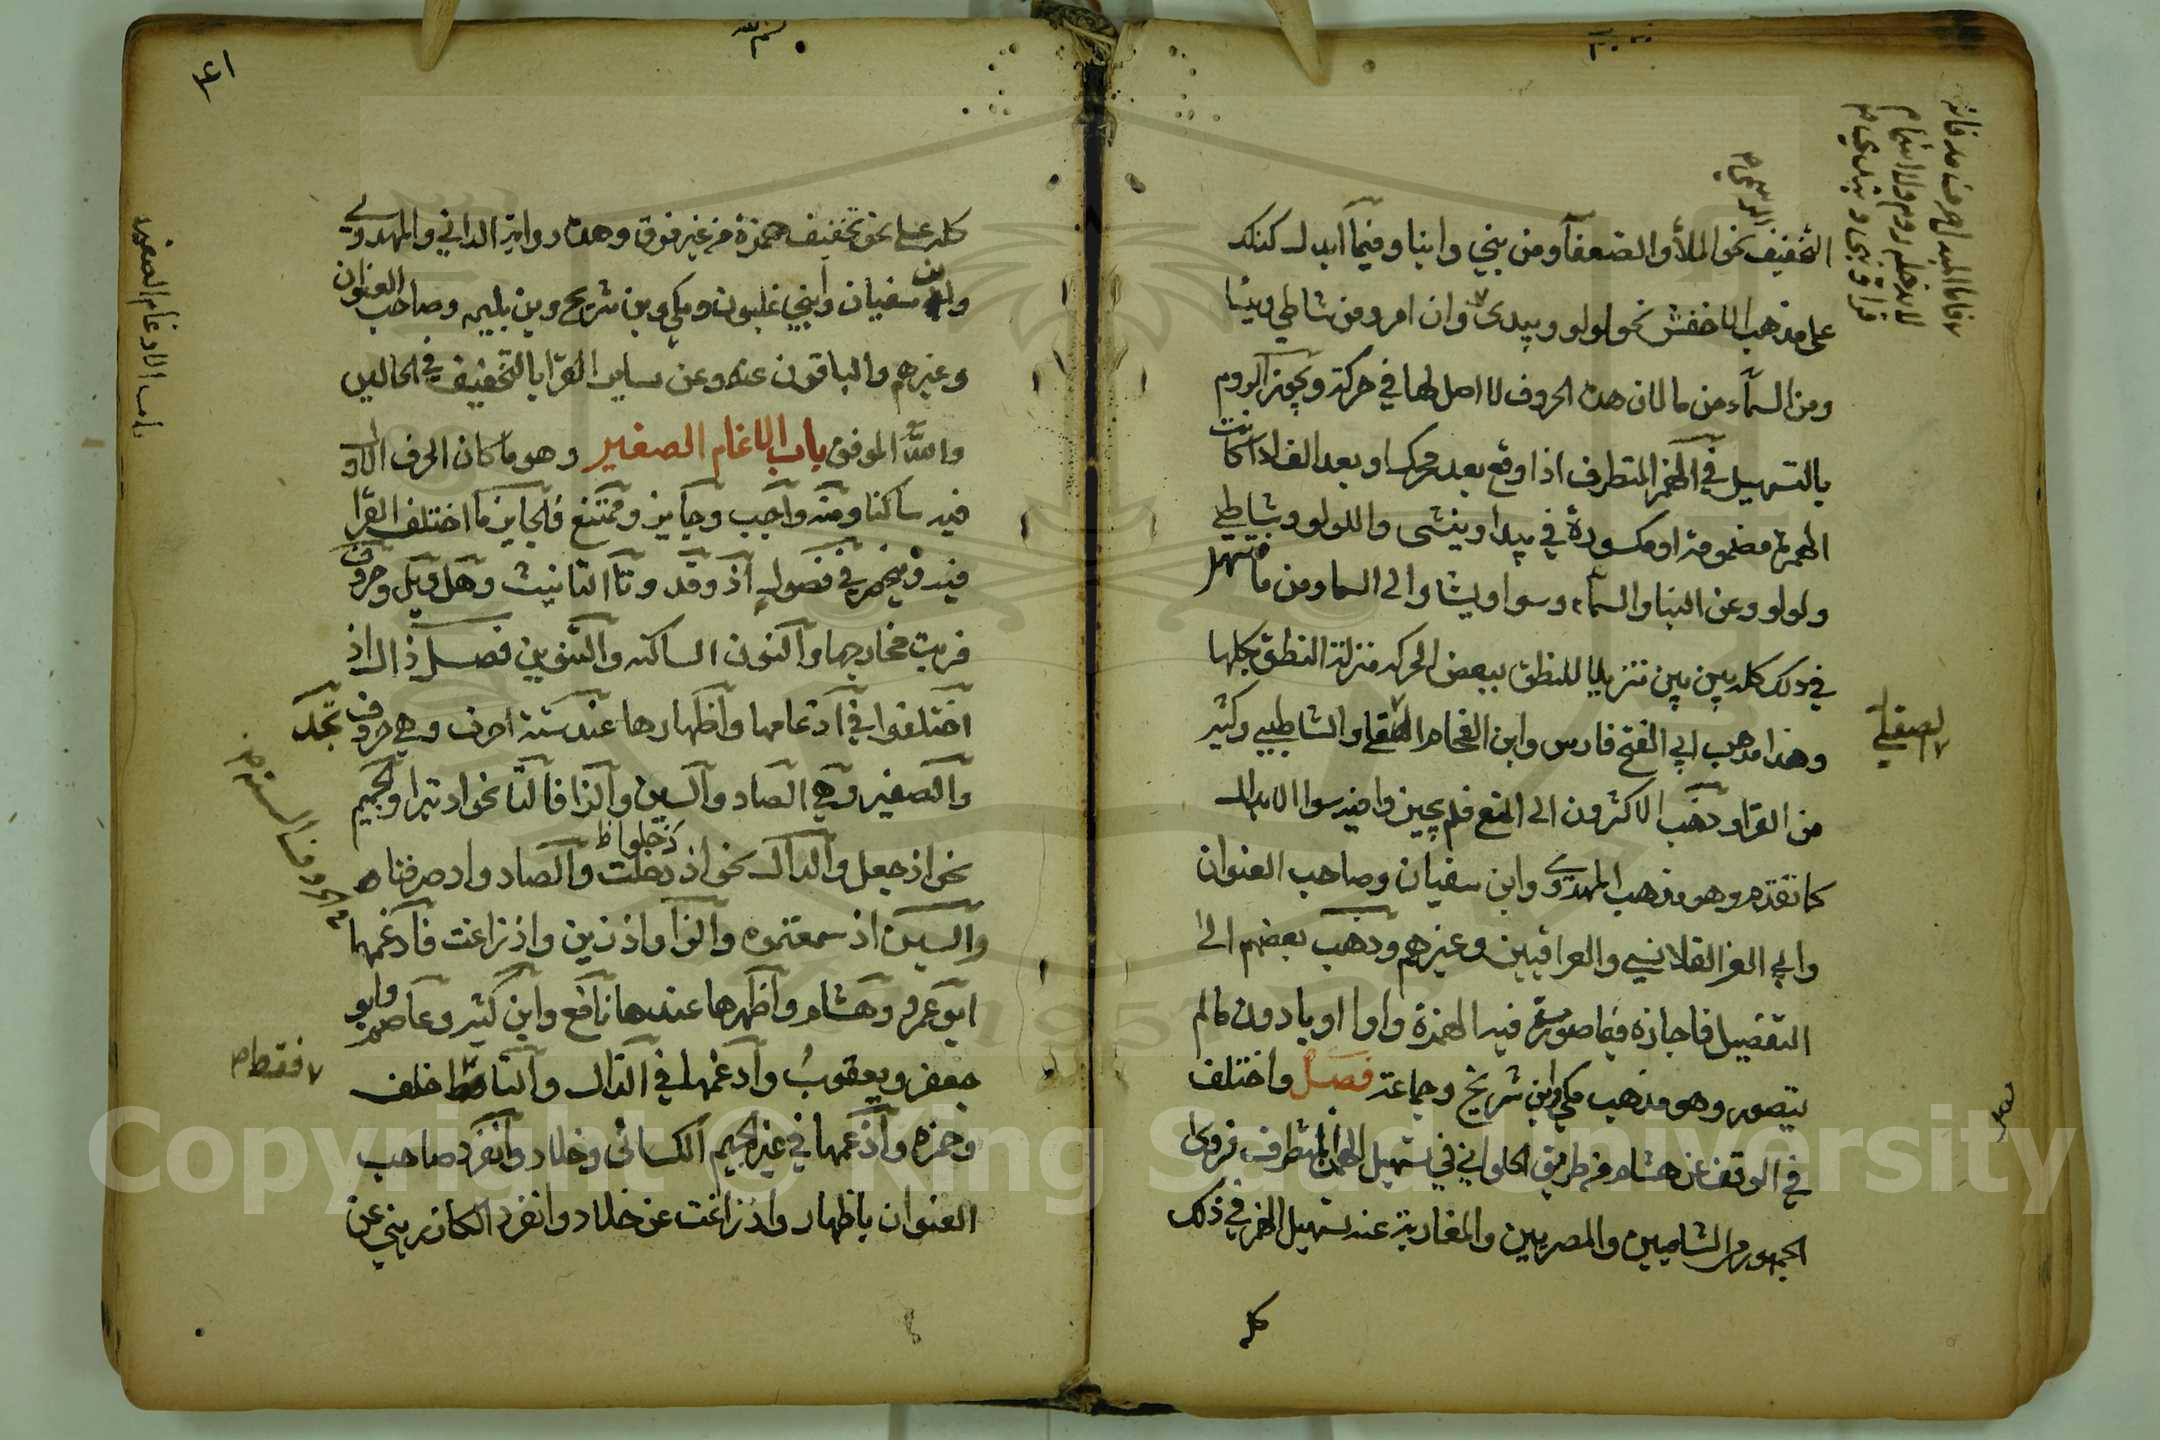 التخفيف نحو الملأ والضعفآ ومن نبي وابنا وفيمآ ابدل كذلك
على مذهب الاخفش نحو لولو ويبدئ وان امرو من شاطي
ومن السمآء من ما لان هذه الحروف لا اصل لها في حركة ويجوز الروم
بالتسهيل في الهمز المتطرف اذا وقع بعد محرك او بعد الف اذا كانت
الهمزة مضمومة او مكسورة في يبدا وينشى واللولو وشاطي
ولولو وعن النبا والسمآء وسوا ويشا والى السما ومن ما فتسهل
في ذلك كله بين بين تنزيلا للنطق ببعض الحركه منزلة النطق بكلها
وهذا مذهب ابي الفتح فارس وابن الفحام والشاطبي وكثير
الصقلي
من القرا وذهب الاكثرون الى المنع فلم يجيزوا فيه سوا الابدال
كما تقدم وهو مذهب المهدوي وابن سفيان وصاحب العنوان
وابي العز القلانسي والعراقيين وغيرهم وذهب بعضهم الى
التفصيل فاجازه فيما صورت فيه الهمزة واوا او يا دون ما لم
يتصور وهو مذهب مكي وابن شريح وجماعة فصل واختلف
في الوقف عن هشام من طريق الحلواني في تسهيل الهمز المتطرف فروى
الجمهور من الشاميين والمصريين والمغاربة عنه تسهيل الهمز في ذلك
كله
٤١
باب الادغام الصغير
كله على نحو تخفيف حمزة من غير فرق وهذه رواية الداني والمهدوي
وابن سفيان وابني غلبون ومكي وبن شريح وبن بليمه وصاحب العنوان
وغيرهم والباقون عنه وعن ساير القرا بالتحقيق في الحالين
والله الموفق باب الاغام الصغير وهو ما كان الحرف الاول
فيه ساكنا ومنه واجب وجايز وممتنع فالجايز ما اختلف القرا
فيه وينحصر في فصول اذ وقد وتا التانيث وهل وبل وحروف
قربت مخارجها والنون الساكنه والتنوين فصل ذال اذ
اختلفوا في ادغامها واظهارها عند ستة احرف وهي حروف تجد
والصفير وهي الصاد والسين والزا فالتا نحو اذ تبرا والجيم
نحو اذ جعل والدال نحو اذ دخلت والصاد واذ صرفنا
اذ دخلوا
والسين اذ سمعتموه والزا واذ زين واذ زاغت فادغمها
ابو عمرو وهشام واظهرها عندها نافع وابن كثير وعاصم وابو
جعفر ويعقوب وادغمها في الدال والتا فقط خلف
فقط
وحمزه وادغمها في غير الجيم الكسائي وخلاد وانفرد صاحب
العنوان باظهار واذ زاغت عن خلاد وانفرد الكارزيني عن
Copyright © King Saud University
1957